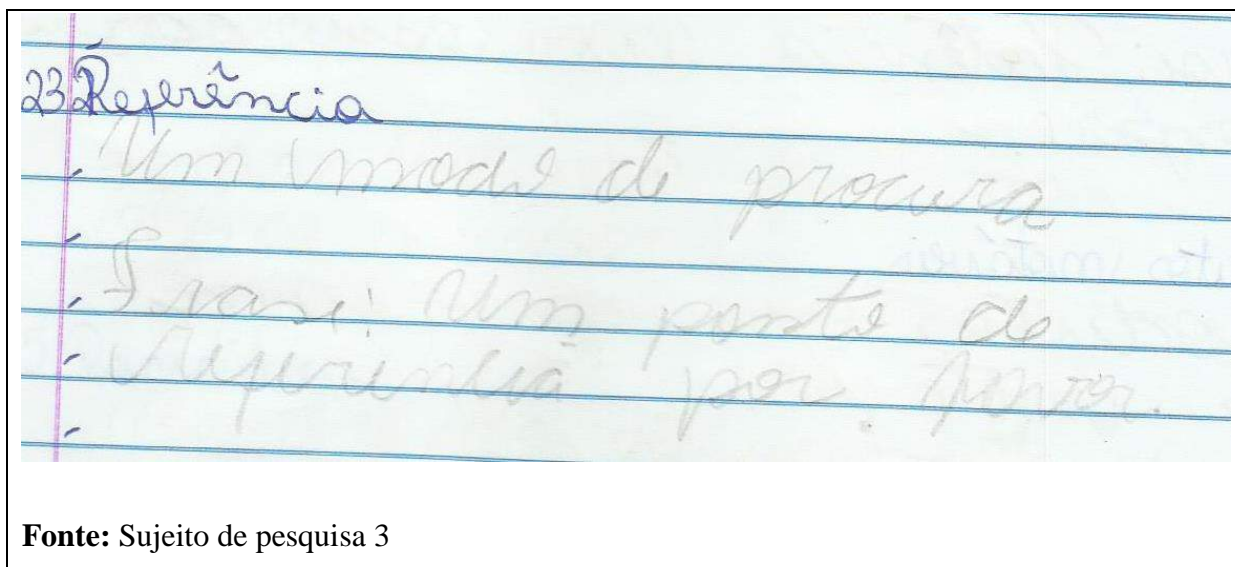 23 Referência
Um modo de procura
Frase: Um ponto de
referencia por favor.
Fonte: Sujeito de pesquisa 3